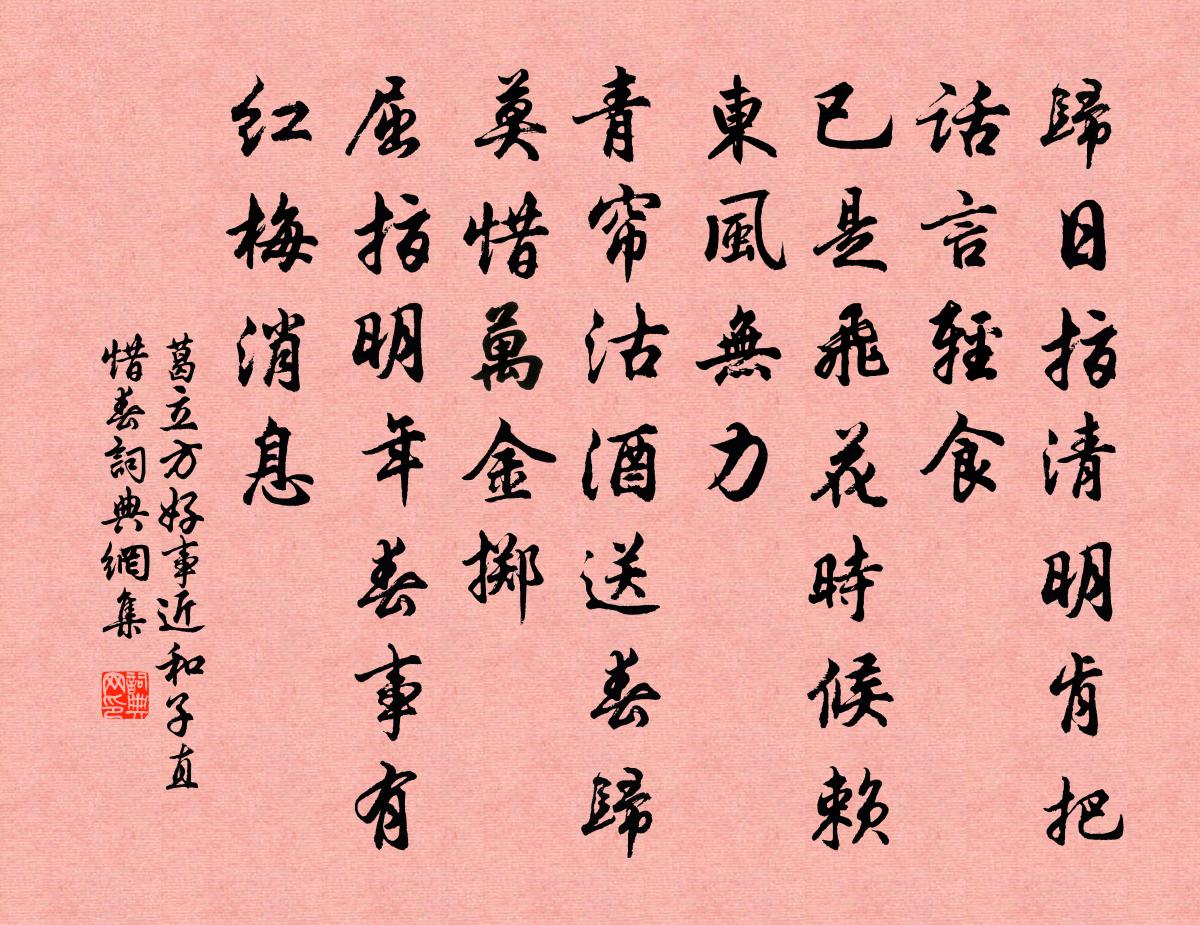 歸日指清明肯把
話言輕食
已是飛花時候賴
東風無力
青帘沽酒送春歸
莫惜萬金擲
屈指明年春事有
紅梅消息
葛立方好事近和子直
惜春詞典網集
詞典網印